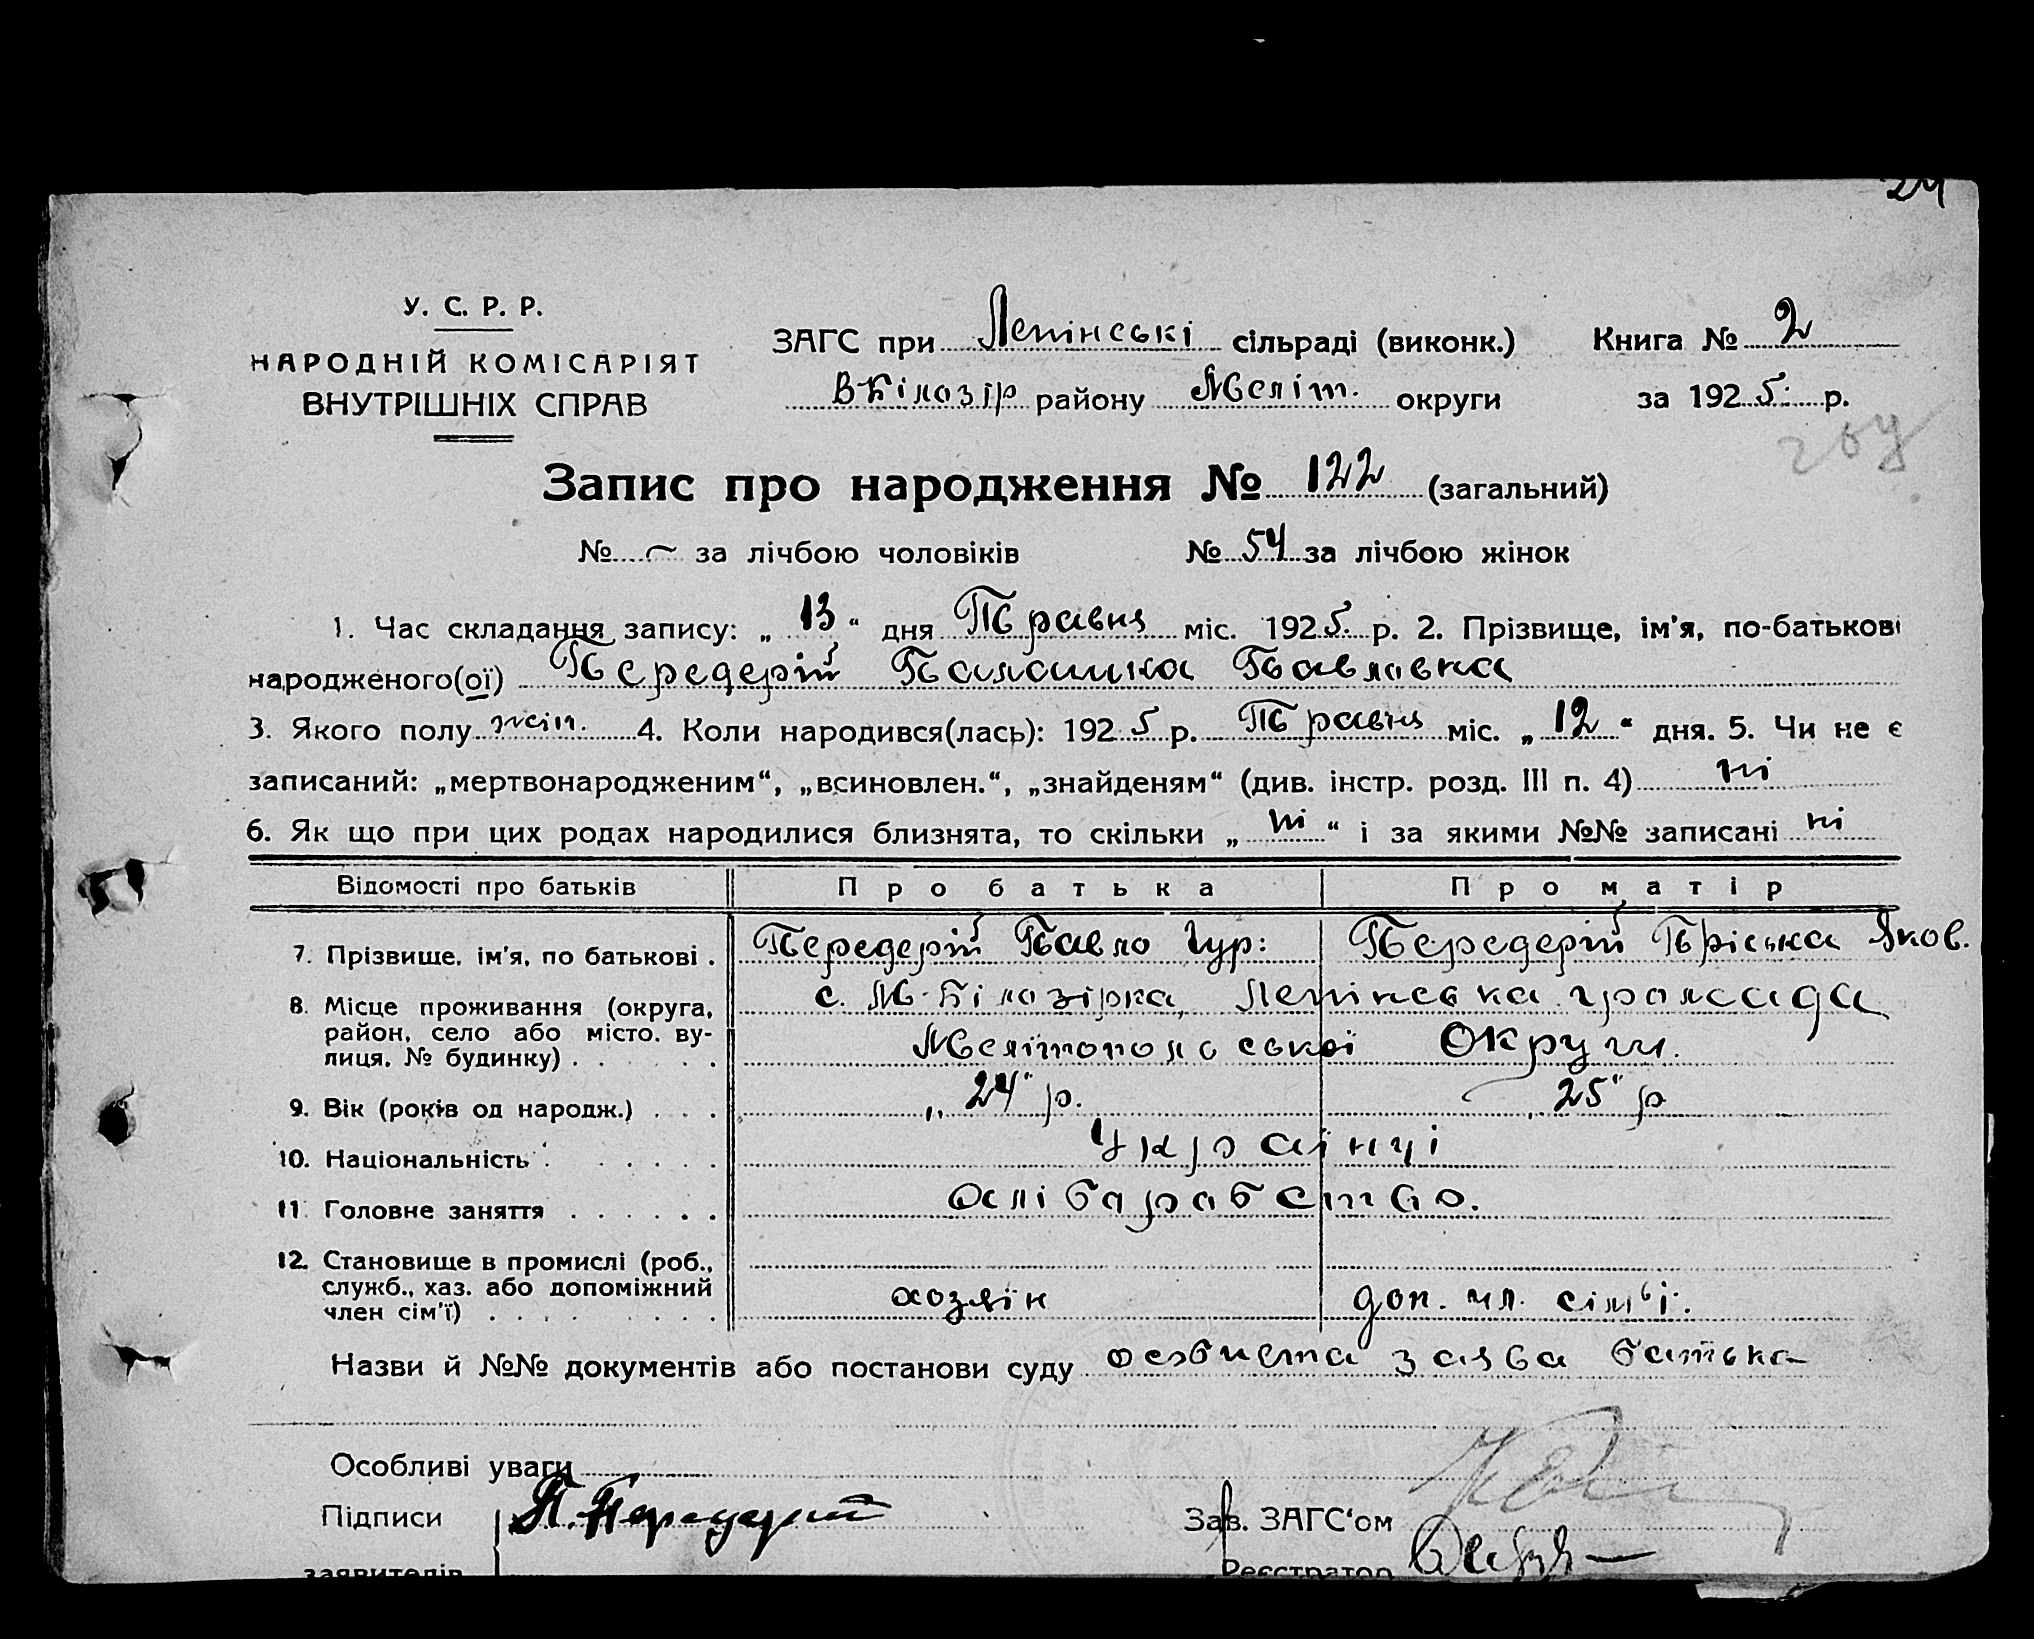 24
У. С. Р. Р.
НАРОДНІЙ КОМІСАРІЯТ
ВНУТРІШНІХ СПРАВ
ЗАГС при Ленінські сільраді (виконк.) Книга № 2
В Білозір району Меліт. округи за 1925 р.
Запис про народження № 122 (загальний)
№ — за лічбою чоловіків № 54 за лічбою жінок
1. Час складання запису: „ 13 “ дня Травня міс. 1925 р. 2. Прізвище, ім'я, по-батькові
народженого(ої) Передерій Палашка Павловна
3. Якого полу жін. 4. Коли народився(лась): 1925 р. Травня міс. „ 12 “ дня. 5. Чи не є
записаний: „мертвонародженим“, „всиновлен.“, „знайденям“ (див. інстр. розд. III п. 4) ні
6. Як що при цих родах народилися близнята, то скільки „ ні “ і за якими №№ записані ні
Відомості про батьків Про батька Про матір
7. Прізвище, ім'я, по батькові . Передерій Павло Гур: Передерій Пріська Яков.
8. Місце проживання (округа, с. М-Білозірка, Ленінська громада
район, село або місто. ву-
лиця, № будинку) . Мелітопольської Округи.
9. Вік (років од народж.) . . . „24" р. „25" р
10. Національність . Українці
11. Головне заняття . . . . . . Хліборобство.
12. Становище в промислі (роб.,
служб., хаз. або допоміжний
член сім'ї) . . . . хозяін доп. чл. сімʼі.
Назви й №№ документів або постанови суду особиста заява батька
Особливі уваги
Підписи П. Передерій Зав. ЗАГС‘ом
заявителів Реєстратор